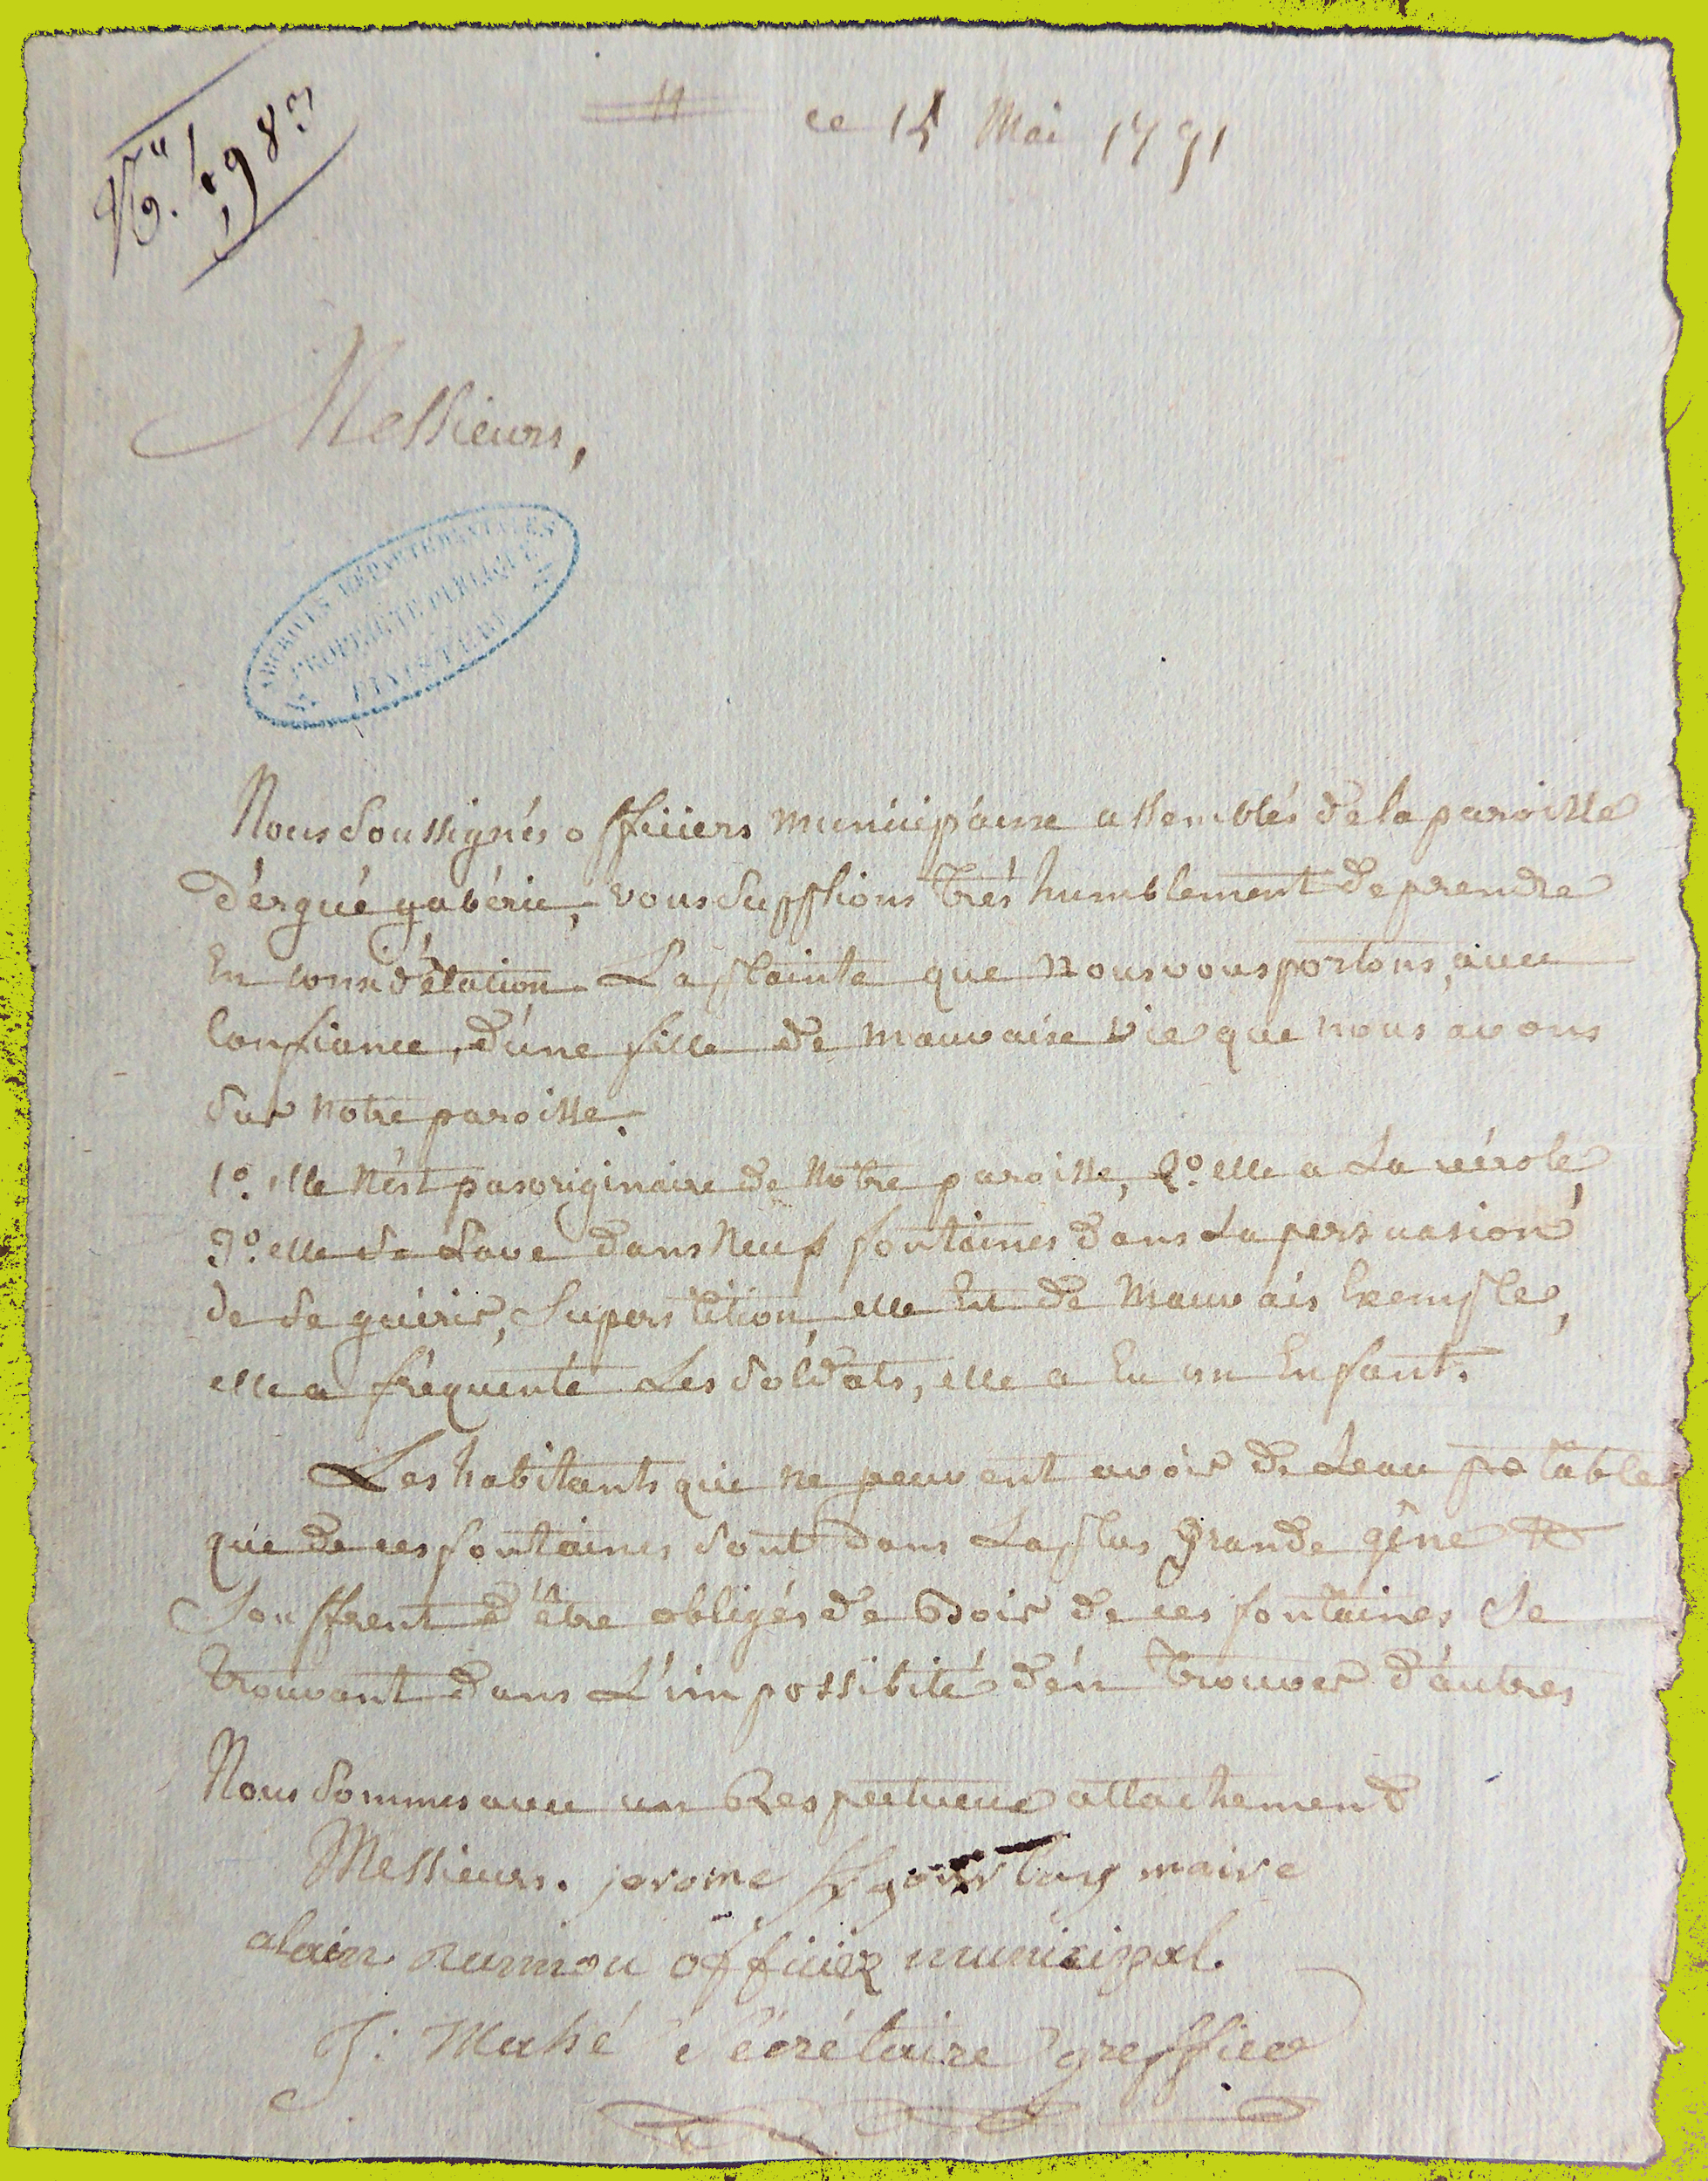 ce 15 Mai 1791
Messieurs,
ARCHIVES DÉPARTEMENTALES
PROPRIÉTÉ PUBLIQUE
FINISTÈRE
Nous soussignés officiers municipáux assemblés de la paroisse
d'érgué gabéric, vous supplions trés humblement de prendre
En considération La plainte que nous vous portons, avec
Confiance, d'une fille de mauvaise vie que nous avons
sur notre paroisse.
1º. elle n'ést pas originaire de notre paroisse, 2º. elle a La vérole,
3º. elle se Lave dans neuf fontaines dans La persuasion
de se guérir, superstition, elle Est de mauvais Exemple,
elle a fréquenté Les soldats, elle a Eu un Enfant.
Les habitants qui ne peuvent avoir de Leau potable
que de ces fontaines sont dans La plus grande gêne &
souffrent d'être obligés de Boir de ces fontaines se
trouvant dans L'impossibité d'én trouver d'áutres
Nous sommes avec un Respectueux attachement
Messieurs. jerome gourlay maire
alain nunnou officier municipal.
J: Mahé Sécrétaire greffier